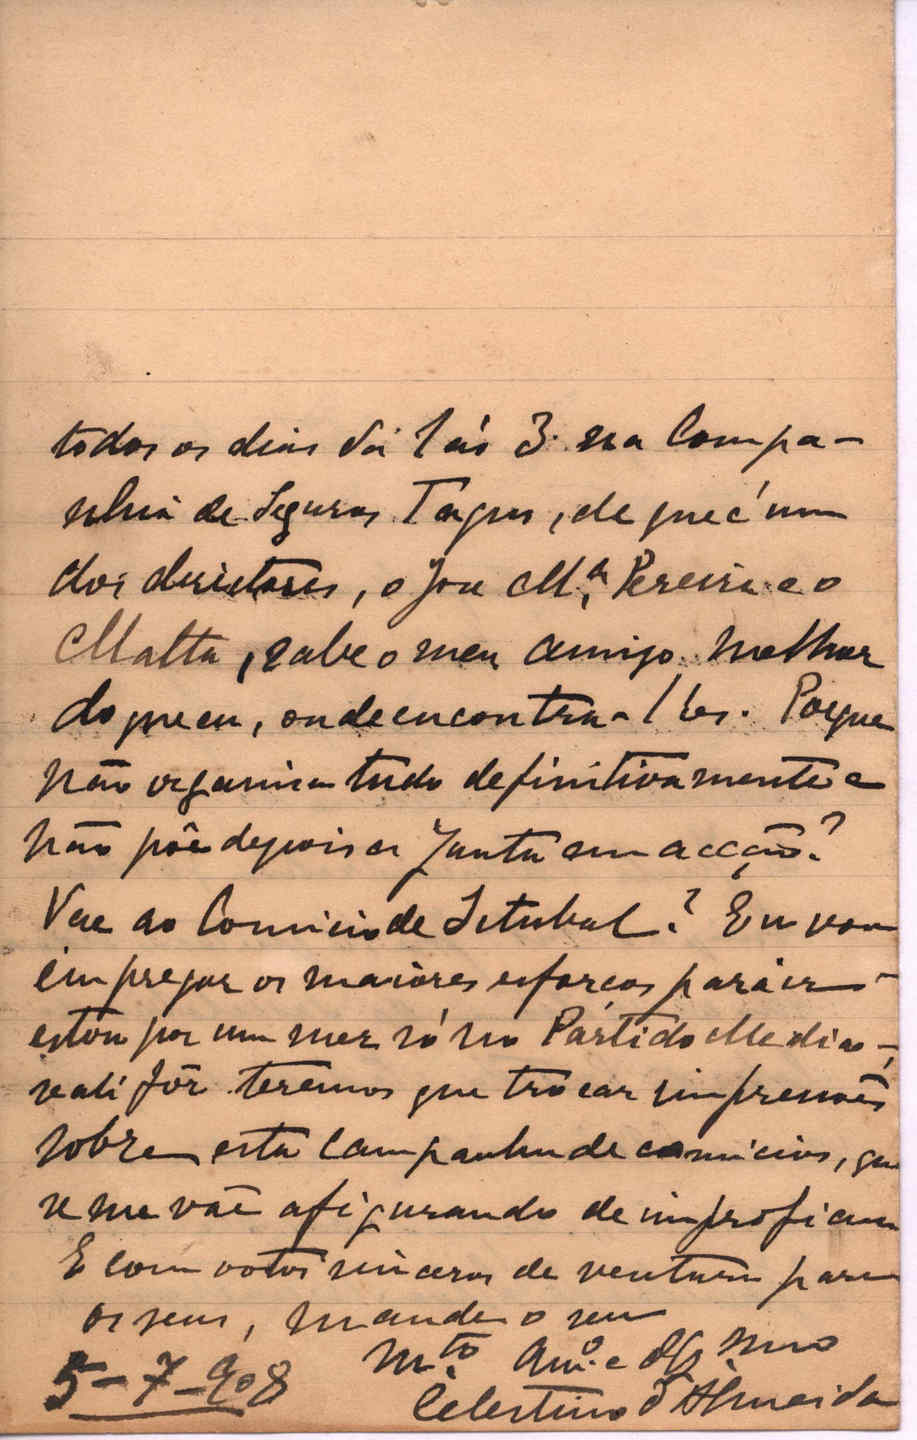 todos os dias das 1 ás 3 na Compa-
nhia de Seguros Tagus, de que é um
dos directores, o José M.ª Pereira e o
Malta, sabe o meu amigo melhor
do que eu, onde encontra-los. Porque
não organisa tudo definitivamente e
não põe depois a Junta em acção?
Vae ao Comicio de Setubal? Eu vou
empregar os maiores esforços para ir
estou por um mez só no Partido Medico,
se ali fôr teremos que trocar impressões
sobre esta campanha de comicios, que
se me vae afigurando de improficua
E com votos sinceros de ventura para
os seus, mande o seu
M.to Am.o e
5-7-908 Celestino d'Almeida